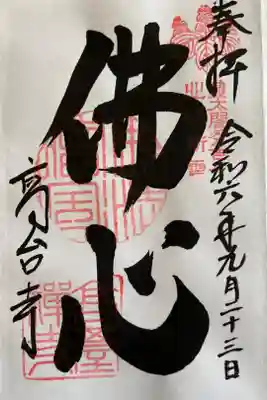 奉拝 令和六年九月二十三日
佛心
高台寺